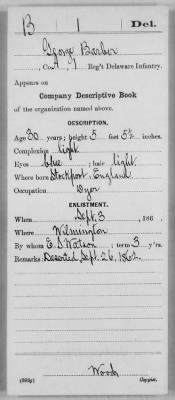 B | 1 | Del.
George Barber
Co. , 1 Reg't Delaware Infantry.
Appears on
Company Descriptive Book
of the organization named above.
DESCRIPTION.
Age 30 years; height 5 feet 5½ inches.
Complexion light
Eyes blue ; hair light
Where born Stockport, England
Occupation Dyer
ENLISTMENT.
When Sept. 3 , 186 .
Where Wilmington
By whom E. S. Watson ; term 3 y'rs.
Remarks: Deserted Sept. 26, 1862.
Wood
(383g) Copyist.